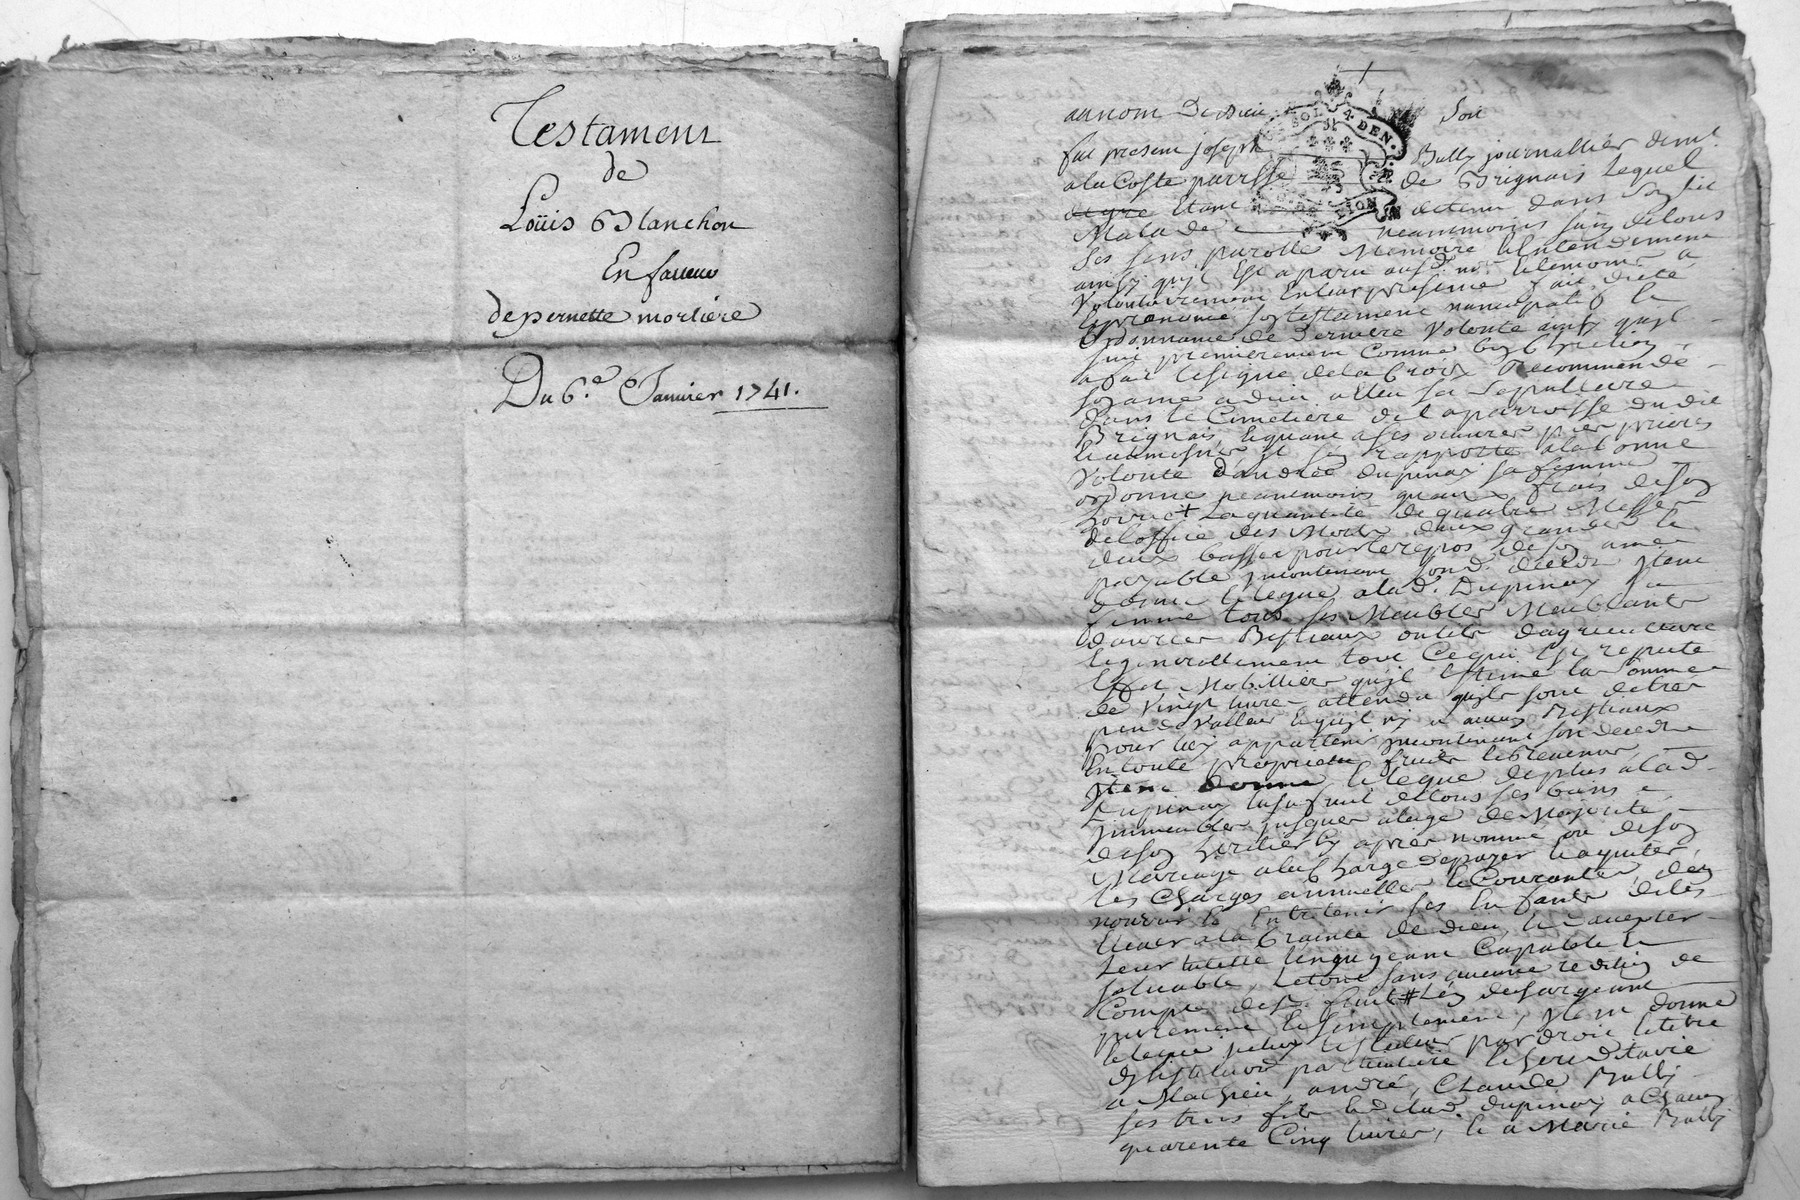 Testament
de
Loüis Blanchon
En faveur
de pernette morliere
Du 6.e Janvier 1741.
SOL 4 DEN.
G. DE LION
au nom De dieu Soit
fut present joseph Bally journallier demt.
a la Coste parrsse de Brignais Lequel
Etant detenu dans Son lit
Malade neanmoins sain de tous
Ses sens parolle Memoire Et Entendement
ainsy quil Est aparu
volontairement En leur presence fait dicté
Et prononcé son testament nuncupatif Et
ordonnance de Derniere volonté ainsy quil
suit premierement Comme bon Chretien
a fait le signe de la Croix Recommandé
son ame a dieu Elleu sa Sepulture
dans le Cimetiere de la parroisse du dit
Brignais, Et quant a ses œuvres pies prieres
Et aumosnes il sen rapporte a la bonne
volonté dandrée dupinay sa femme
ordonne neanmoins quaux frais de son
la quantité de quatre Messes
de loffice des Morts deux grandes Et
deux basses pour le repos de son ame
payable incontinant son d. deceds Item
donne Et legue a la d. Dupinay sa
femme tous ses Meubles Meublants
danrées Bestiaux outils dagriculture
Et generallement tout Ce qui Est reputé
Effet Mobillier quil Estime la somme
de vingt livres attendu quils sont de tres
peu de valleur Et quil ny a aucuns Bestiaux
pour luy appartenir incontinant son deceds
En toute proprieté fruits Et Revenus
Item donne Et legue de plus a la d.
Dupinay lusufruit de tous ses biens
immeubles jusques a lage de Majorité
de son heritier cy apres nommé ou de son
Mariage a la Charge de payer Et aquiter
les Charges annuelles Et Courantes, den
nourrir Et Entretenir ses Enfants de les
Elever a la Crainte de dieu, Et daccepter
Leur tutelle lengageant Capable Et
solvable, Le tout sans aucune redition de
Compte
purement Et simplement, Item donne
Et legue par droit
particuliere Et hereditaire
a Mathieu, andré, Claude Bally
ses trois fils Et de la d. dupinay a Chacun
quarente Cinq livres, Et a Marie Bally